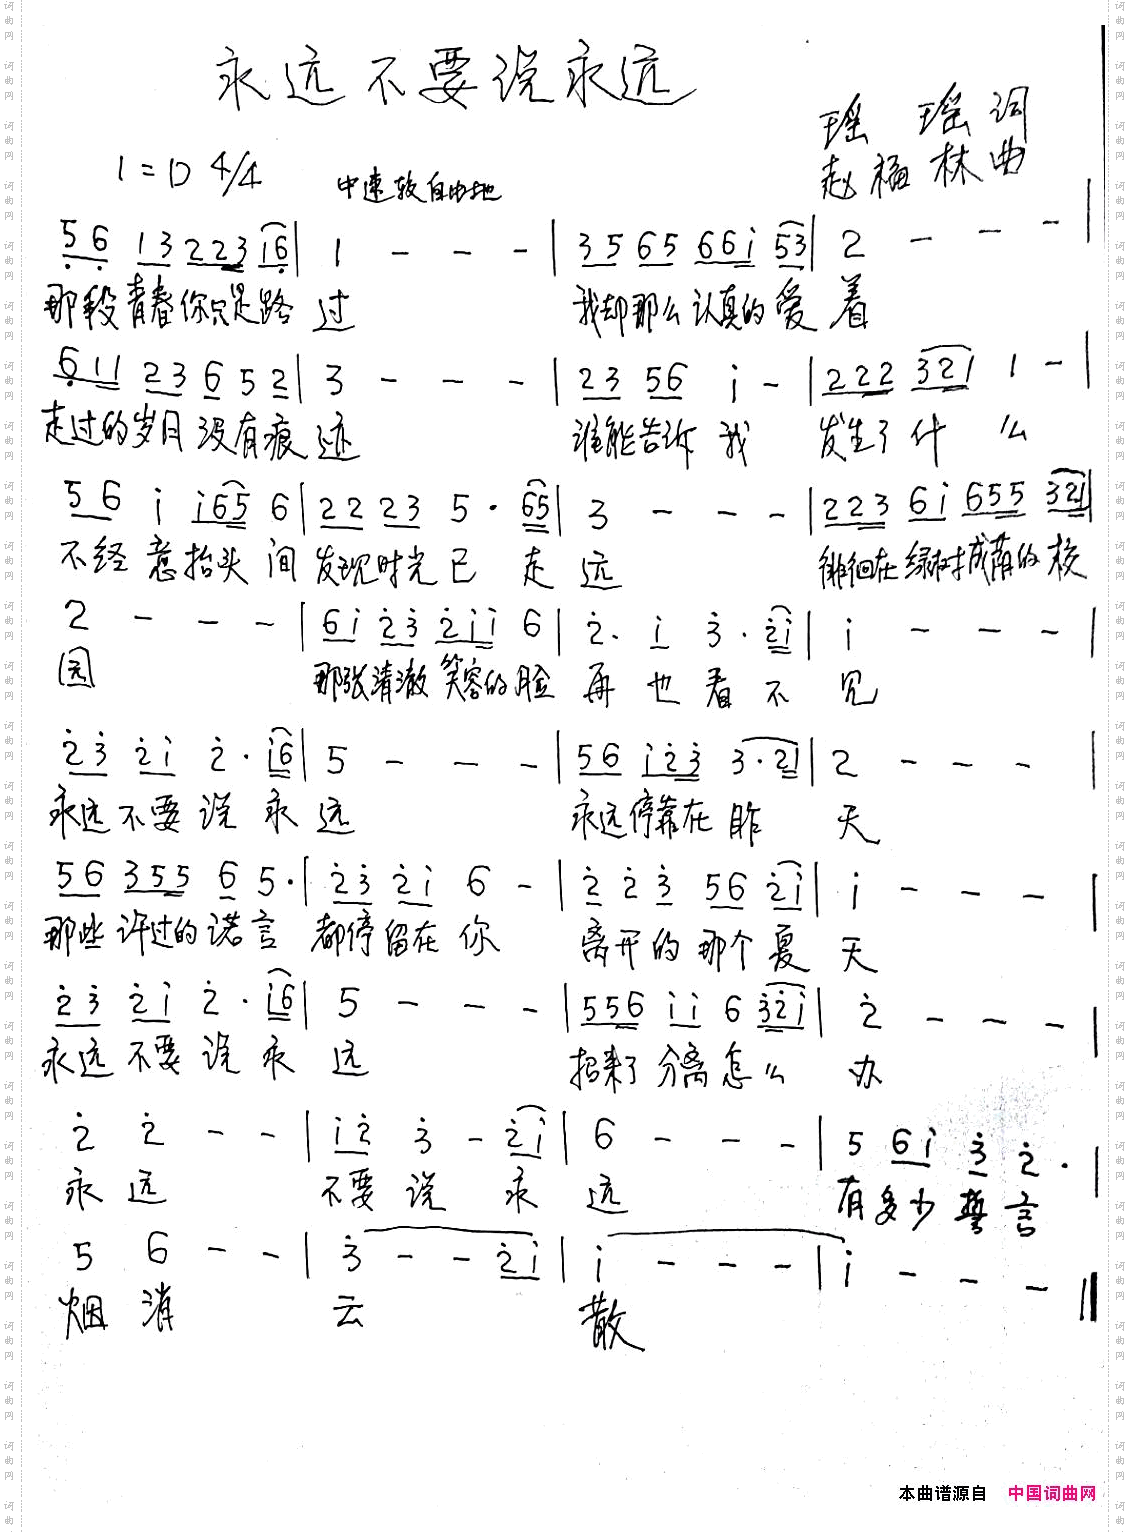 永远不要说永远
瑶 瑶 词
赵 福 林 曲
1=D 4/4 中速较自由地
5 6 1 3 2 2 3 1 6 | 1 - - - | 3 5 6 5 6 6 i 5 3 | 2 - - - |
那段青春你只是路 过 我却那么认真的爱 着
6 1 1 2 3 6 5 2 | 3 - - - | 2 3 5 6 i - | 2 2 2 3 2 1 1 - |
走过的岁月没有痕 迹 谁能告诉 我 发生了什 么
5 6 i i 6 5 6 | 2 2 2 3 5 · 6 5 | 3 - - - | 2 2 3 6 i 6 5 5 3 2 1 |
不经意抬头间 发现时光已 走 远 徘徊在绿树成荫的校
2 - - - | 6 i 2 3 2 i i 6 | 2 · i 3 · 2 i | i - - - |
园 那张清澈笑容的脸 再 也 看 不 见
2 3 2 i 2 · i 6 | 5 - - - | 5 6 i 2 3 3 · 2 i | 2 - - - |
永远不要说 永 远 永远停靠在 昨 天
5 6 3 5 5 6 5 · | 2 3 2 i 6 - | 2 2 3 5 6 2 i | i - - - |
那些许过的诺言 都停留在 你 离开的那个夏 天
2 3 2 i 2 · i 6 | 5 - - - | 5 5 6 i i 6 3 2 i | 2 - - - |
永远不要说 永 远 招来了分离怎么 办
2 2 - - | i 2 3 - 2 i | 6 - - - | 5 6 i 3 2 ·
永 远 不要 说 永 远 有多少誓言
5 6 - - | 3 - - 2 i | i - - - | i - - - ||
烟 消 云 散
本曲谱源自 中国词曲网